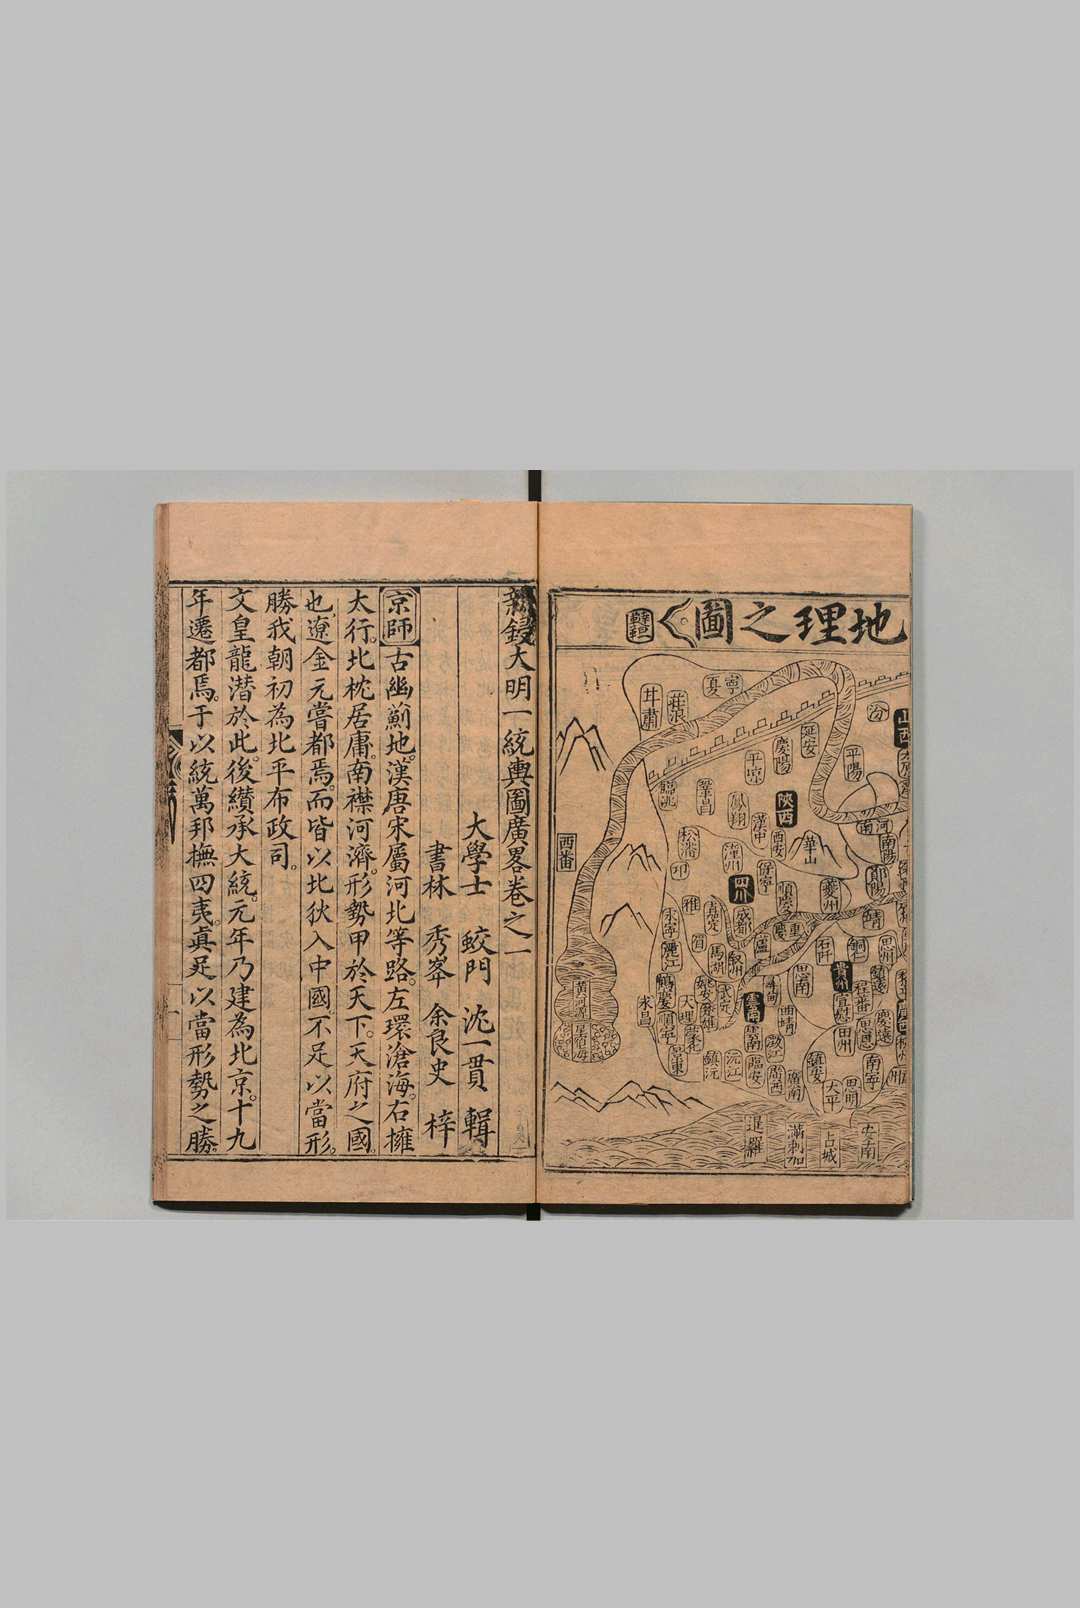 地理之圖
韃靼
寧夏
甘肅
莊浪
汾
山西
延安
慶陽
平陽
平凉
臨洮
鞏昌
鳳翔
漢中
陝西
西安
河南
南陽
華山
西番
松潘
卭
潼州
保寧
四川
順慶
夔州
鄖陽
雅
嘉定
成都
重慶
瀘
永寧
麗江
馬湖
叙州
石阡
銅仁
思州
思南
貴州
鎮遠
黃河源
星宿海
鶴慶
永昌
大理
姚安
武定
尋甸
雲南
雲南
曲靖
宣慰
程番
慶遠
田州
思恩
鎮沅
沅江
臨安
廣西
廣南
鎮安
南寧
太平
思明
暹羅
滿剌加
占城
安南
新鋟大明一統輿圖廣畧卷之一
大學士 蛟門 沈一貫 輯
書林 秀峯 余良史 梓
京師 古幽薊地。漢唐宋屬河北等路。左環滄海。右擁
太行。北枕居庸。南襟河濟。形勢甲於天下。天府之國
也。遼金元嘗都焉。而皆以北狄入中國不足以當形
勝我朝初為北平布政司。
文皇龍潜於此。後纘承大統。元年乃建為北京。十九
年遷都焉。于以統萬邦撫四夷。眞足以當形勢之勝。